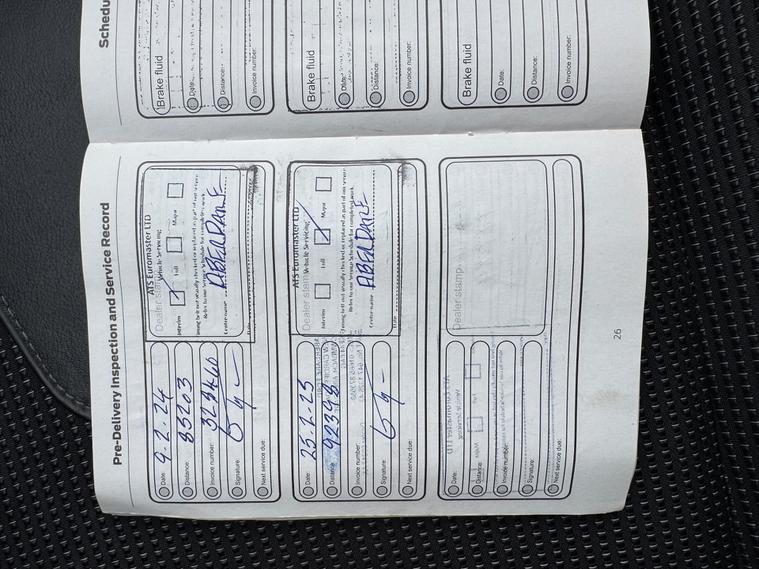 Pre-Delivery Inspection and Service Record
Date: 9.2.24
Distance: 85203
Invoice number:
Signature:
Next service due:
Dealer stamp
ATS Euromaster LTD
Vehicle Servicing
Interim Full Major
Timing belt not usually checked or replaced as part of our service
Refer to our Service Schedule for completed work
Centre name ABERDARE
Date
Date: 25-2-25
Distance: 92398
Invoice number:
Signature:
Next service due:
Dealer stamp
ATS Euromaster LTD
Vehicle Servicing
Interim Full Major
Timing belt not usually checked or replaced as part of our service
Refer to our Service Schedule for completed work
Centre name ABERDARE
Date
Date:
Distance:
Invoice number:
Signature:
Next service due:
Dealer stamp
26
Brake fluid
Date:
Distance:
Invoice number:
Brake fluid
Date:
Distance:
Invoice number:
Brake fluid
Date:
Distance:
Invoice number: